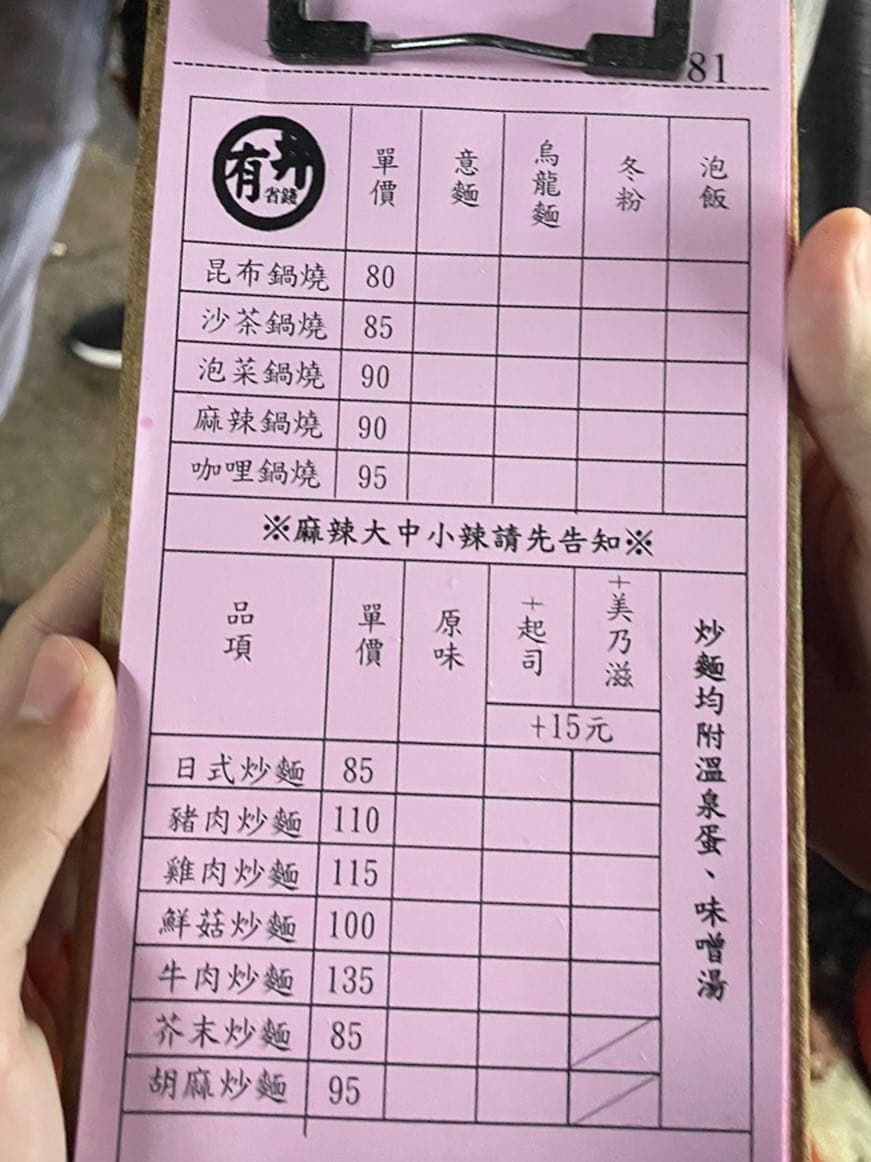 81
有丼 省錢 單價 意麵 烏龍麵 冬粉 泡飯
昆布鍋燒 80
沙茶鍋燒 85
泡菜鍋燒 90
麻辣鍋燒 90
咖哩鍋燒 95
※麻辣大中小辣請先告知※
品項 單價 原味 +起司 +美乃滋
+15元
炒麵均附溫泉蛋、味噌湯
日式炒麵 85
豬肉炒麵 110
雞肉炒麵 115
鮮菇炒麵 100
牛肉炒麵 135
芥末炒麵 85
胡麻炒麵 95